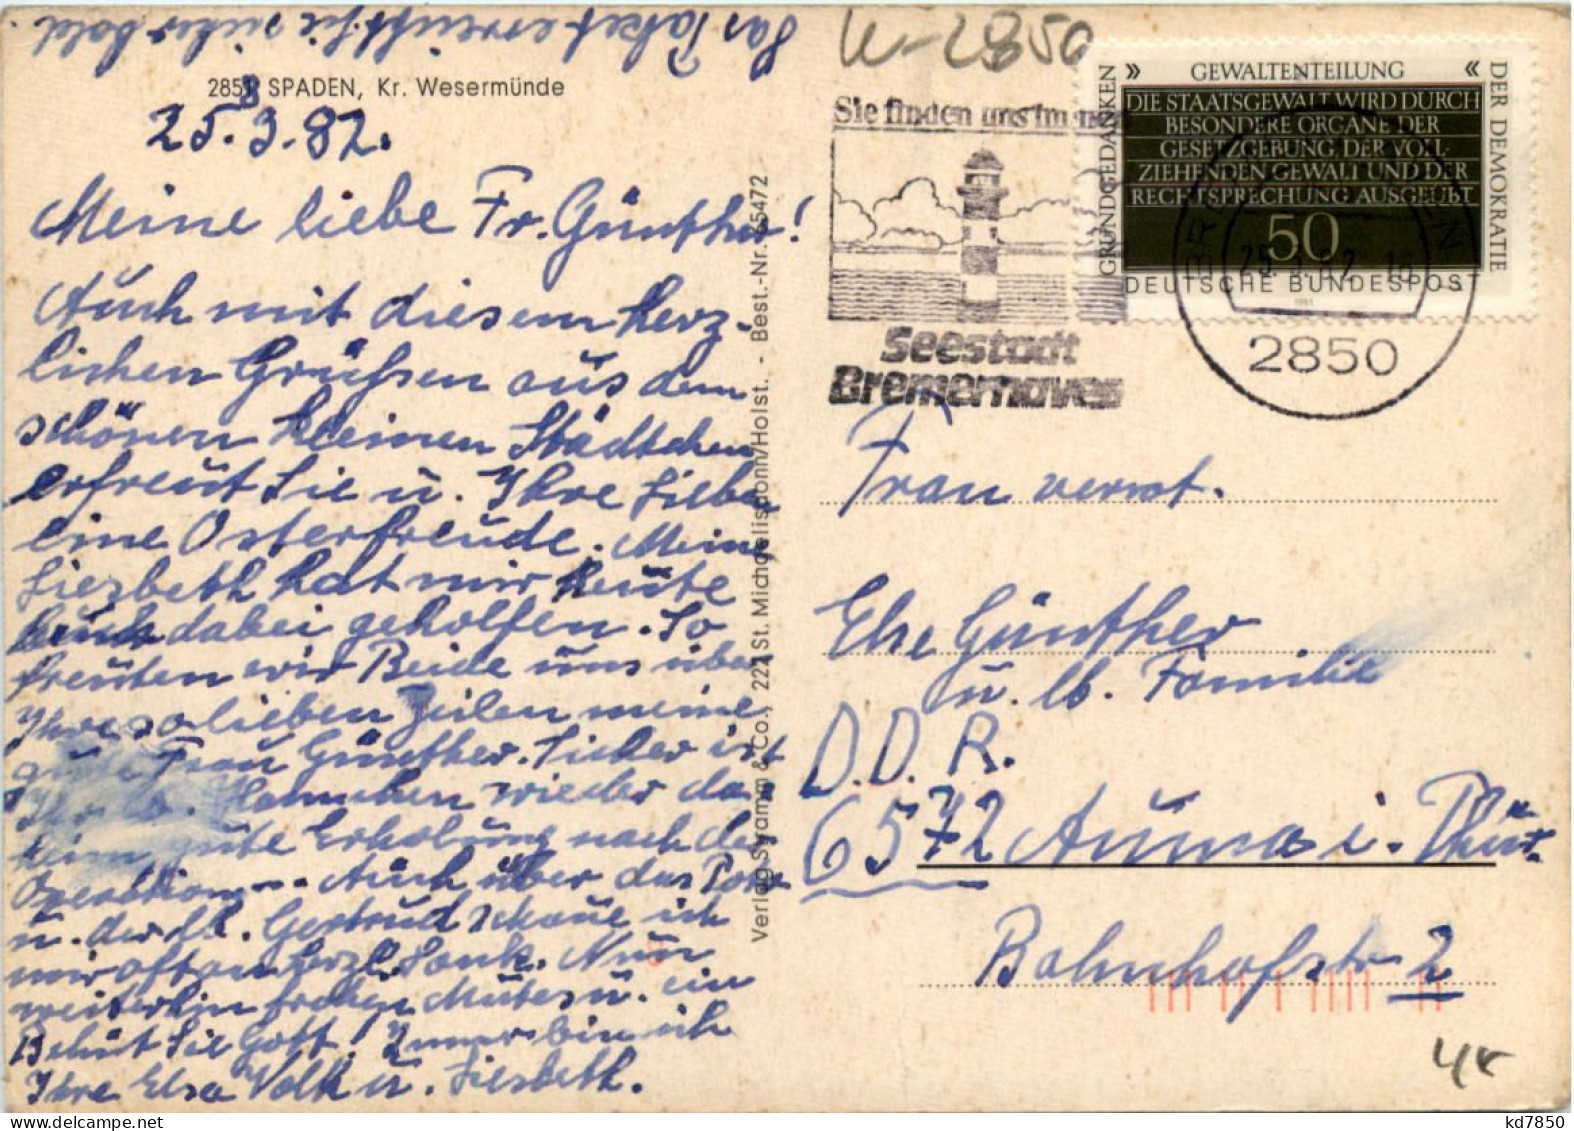 Das Paket erreicht Sie sicher bald.
W-2850
2851 SPADEN, Kr. Wesermünde
25.3.82.
Meine liebe Fr. Günther!
Auch mit diesem herz-
lichen Grüßen aus dem
schönen kleinen Städtchen
erfreut Sie u. Ihre Lieben
eine Osterfreude. Meine
Liesbeth hat mir heute
dabei geholfen. So
freuten wir Beide uns über
Ihre so lieben Zeilen meine
gute Frau Günther. Sicher ist
Ihr lb. Hannchen wieder da-
heim gute Erholung nach der
Operation. Auch über das
u. der lb. Gertrud schaue ich
mir oft an herzl. Dank. Nun
weiterhin frohen Mutes u. ein
Behüt Sie Gott! Immer bin ich
Ihre Elsa Volk u. Liesbeth.
Verlag Schramm & Co., 222 St. Michaelisdonn/Holst., - Best.-Nr. 65472
Sie finden uns im
Seestadt
Bremerhaven
» GEWALTENTEILUNG «
GRUNDGEDANKEN
DER DEMOKRATIE
DIE STAATSGEWALT WIRD DURCH
BESONDERE ORGANE DER
GESETZGEBUNG, DER VOLL-
ZIEHENDEN GEWALT UND DER
RECHTSPRECHUNG AUSGEÜBT
50
DEUTSCHE BUNDESPOST
1981
25.3.82-18
2850
Frau verwt.
Else Günther
u. lb. Familie
D.D.R.
6572 Auma i. Thür.
Bahnhofstr 2
kd7850